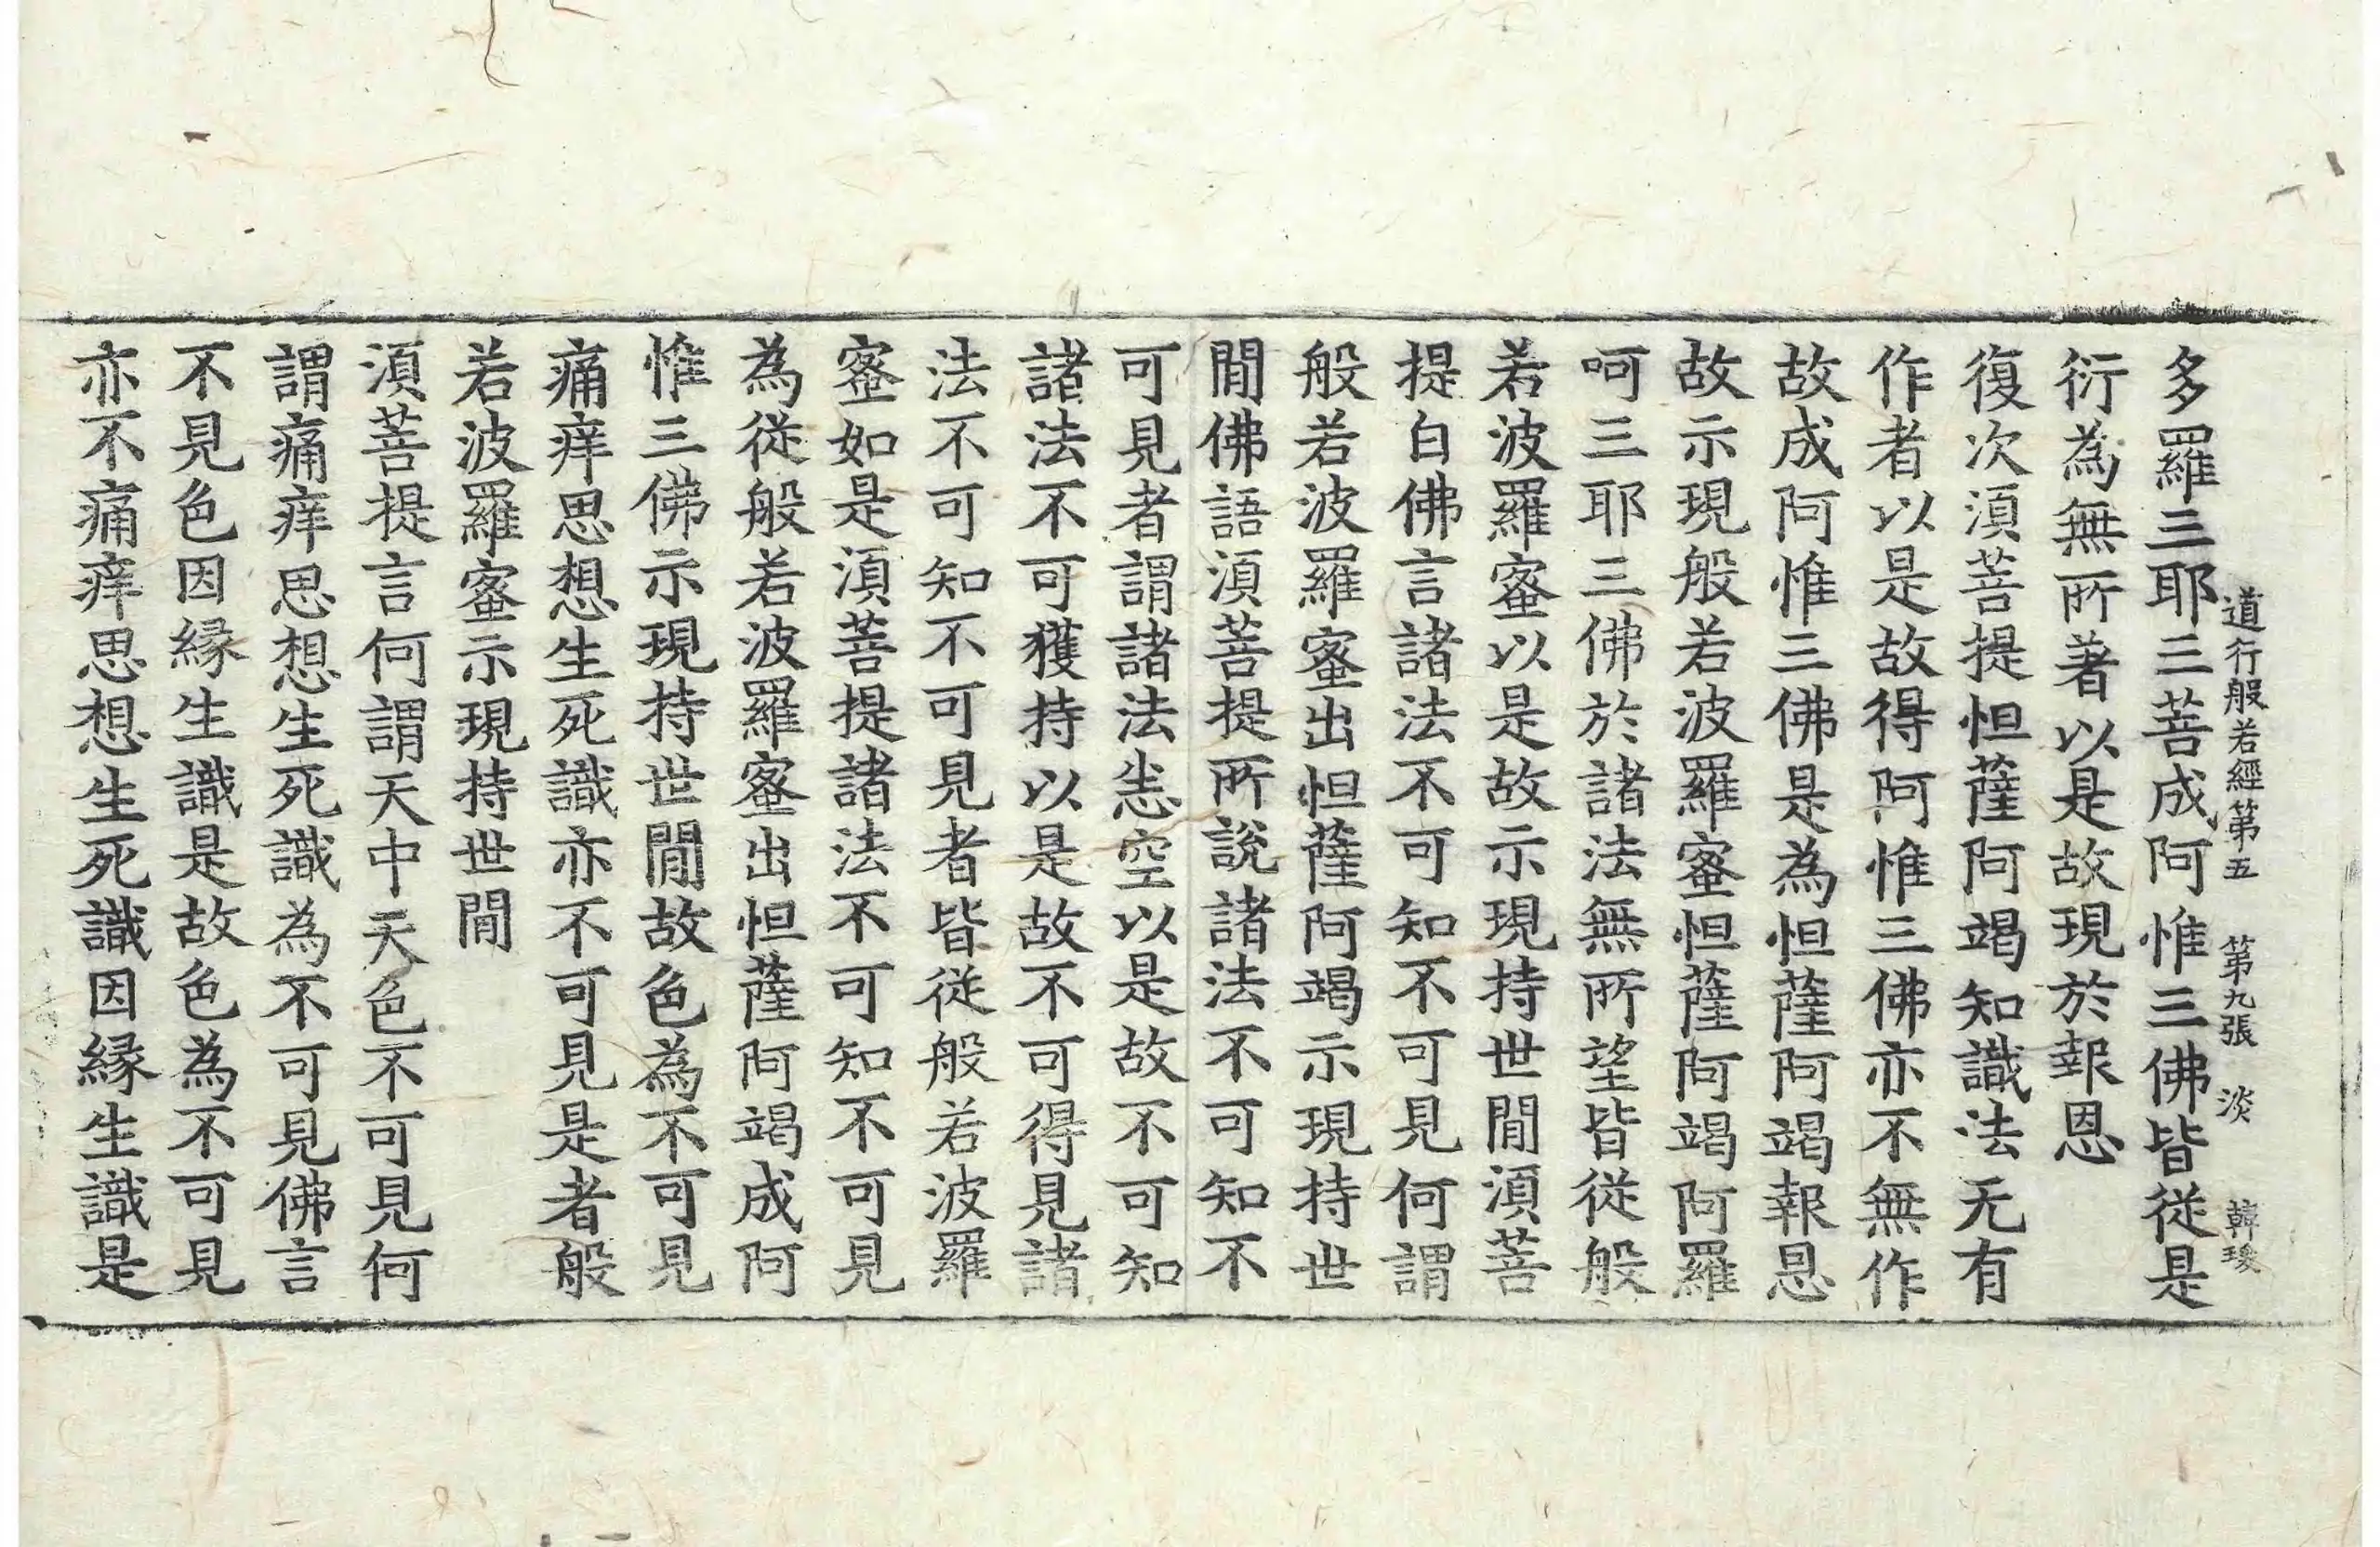 道行般若經第五 第九張 淡 韓瓊
多羅三耶三菩成阿惟三佛皆從是
衍為無所著以是故現於報恩
復次湏菩提怛薩阿竭知識法无有
作者以是故得阿惟三佛亦不無作
故成阿惟三佛是為怛薩阿竭報恩
故示現般若波羅蜜怛薩阿竭阿羅
呵三耶三佛於諸法無所望皆從般
若波羅蜜以是故示現持世間湏菩
提白佛言諸法不可知不可見何謂
般若波羅蜜出怛薩阿竭示現持世
間佛語湏菩提所說諸法不可知不
可見者謂諸法恙空以是故不可知
諸法不可獲持以是故不可得見諸
法不可知不可見者皆從般若波羅
蜜如是湏菩提諸法不可知不可見
為從般若波羅蜜出怛薩阿竭成阿
惟三佛示現持世間故色為不可見
痛痒思想生死識亦不可見是者般
若波羅蜜示現持世間
湏菩提言何謂天中天色不可見何
謂痛痒思想生死識為不可見佛言
不見色因緣生識是故色為不可見
亦不痛痒思想生死識因緣生識是